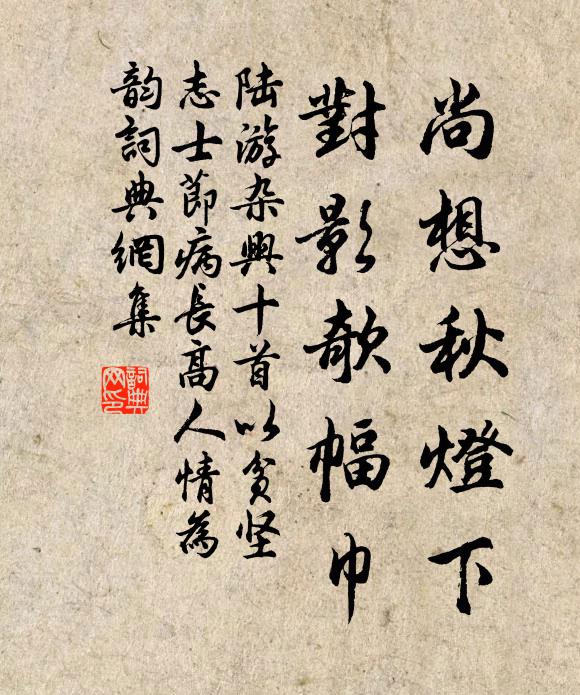 尚想秋燈下
對影欹幅巾
陆游杂興十首以貧坚
志士節病長高人情為
韵詞典網集
詞典
网印